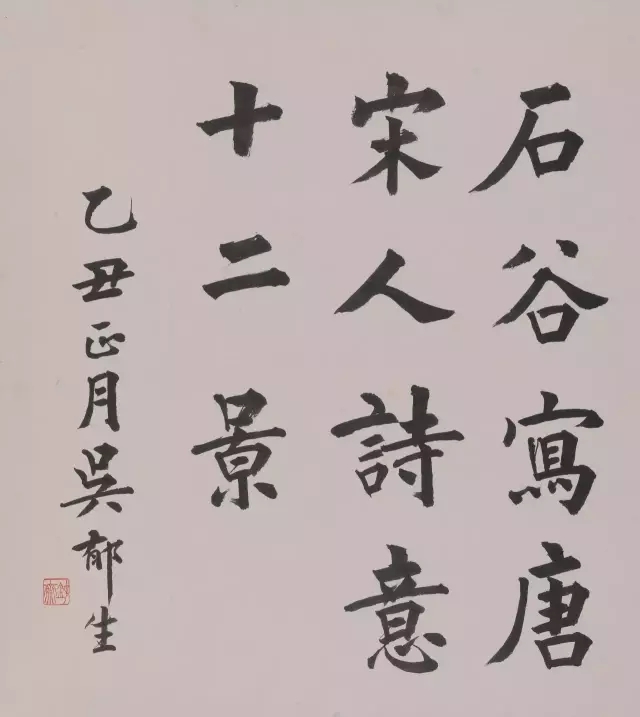 石谷寫唐
宋人詩意
十二景
乙丑正月吳郁生